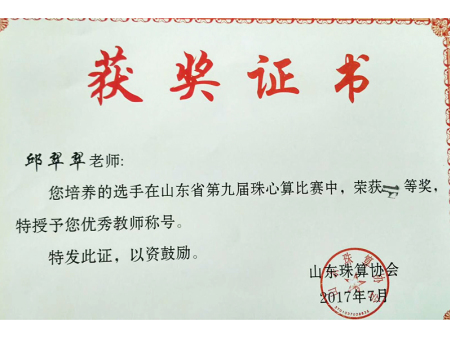 获奖证书
邱翠翠老师:
您培养的选手在山东省第九届珠心算比赛中，荣获二等奖，
特授予您优秀教师称号。
特发此证，以资鼓励。
山东珠算协会
2017年7月